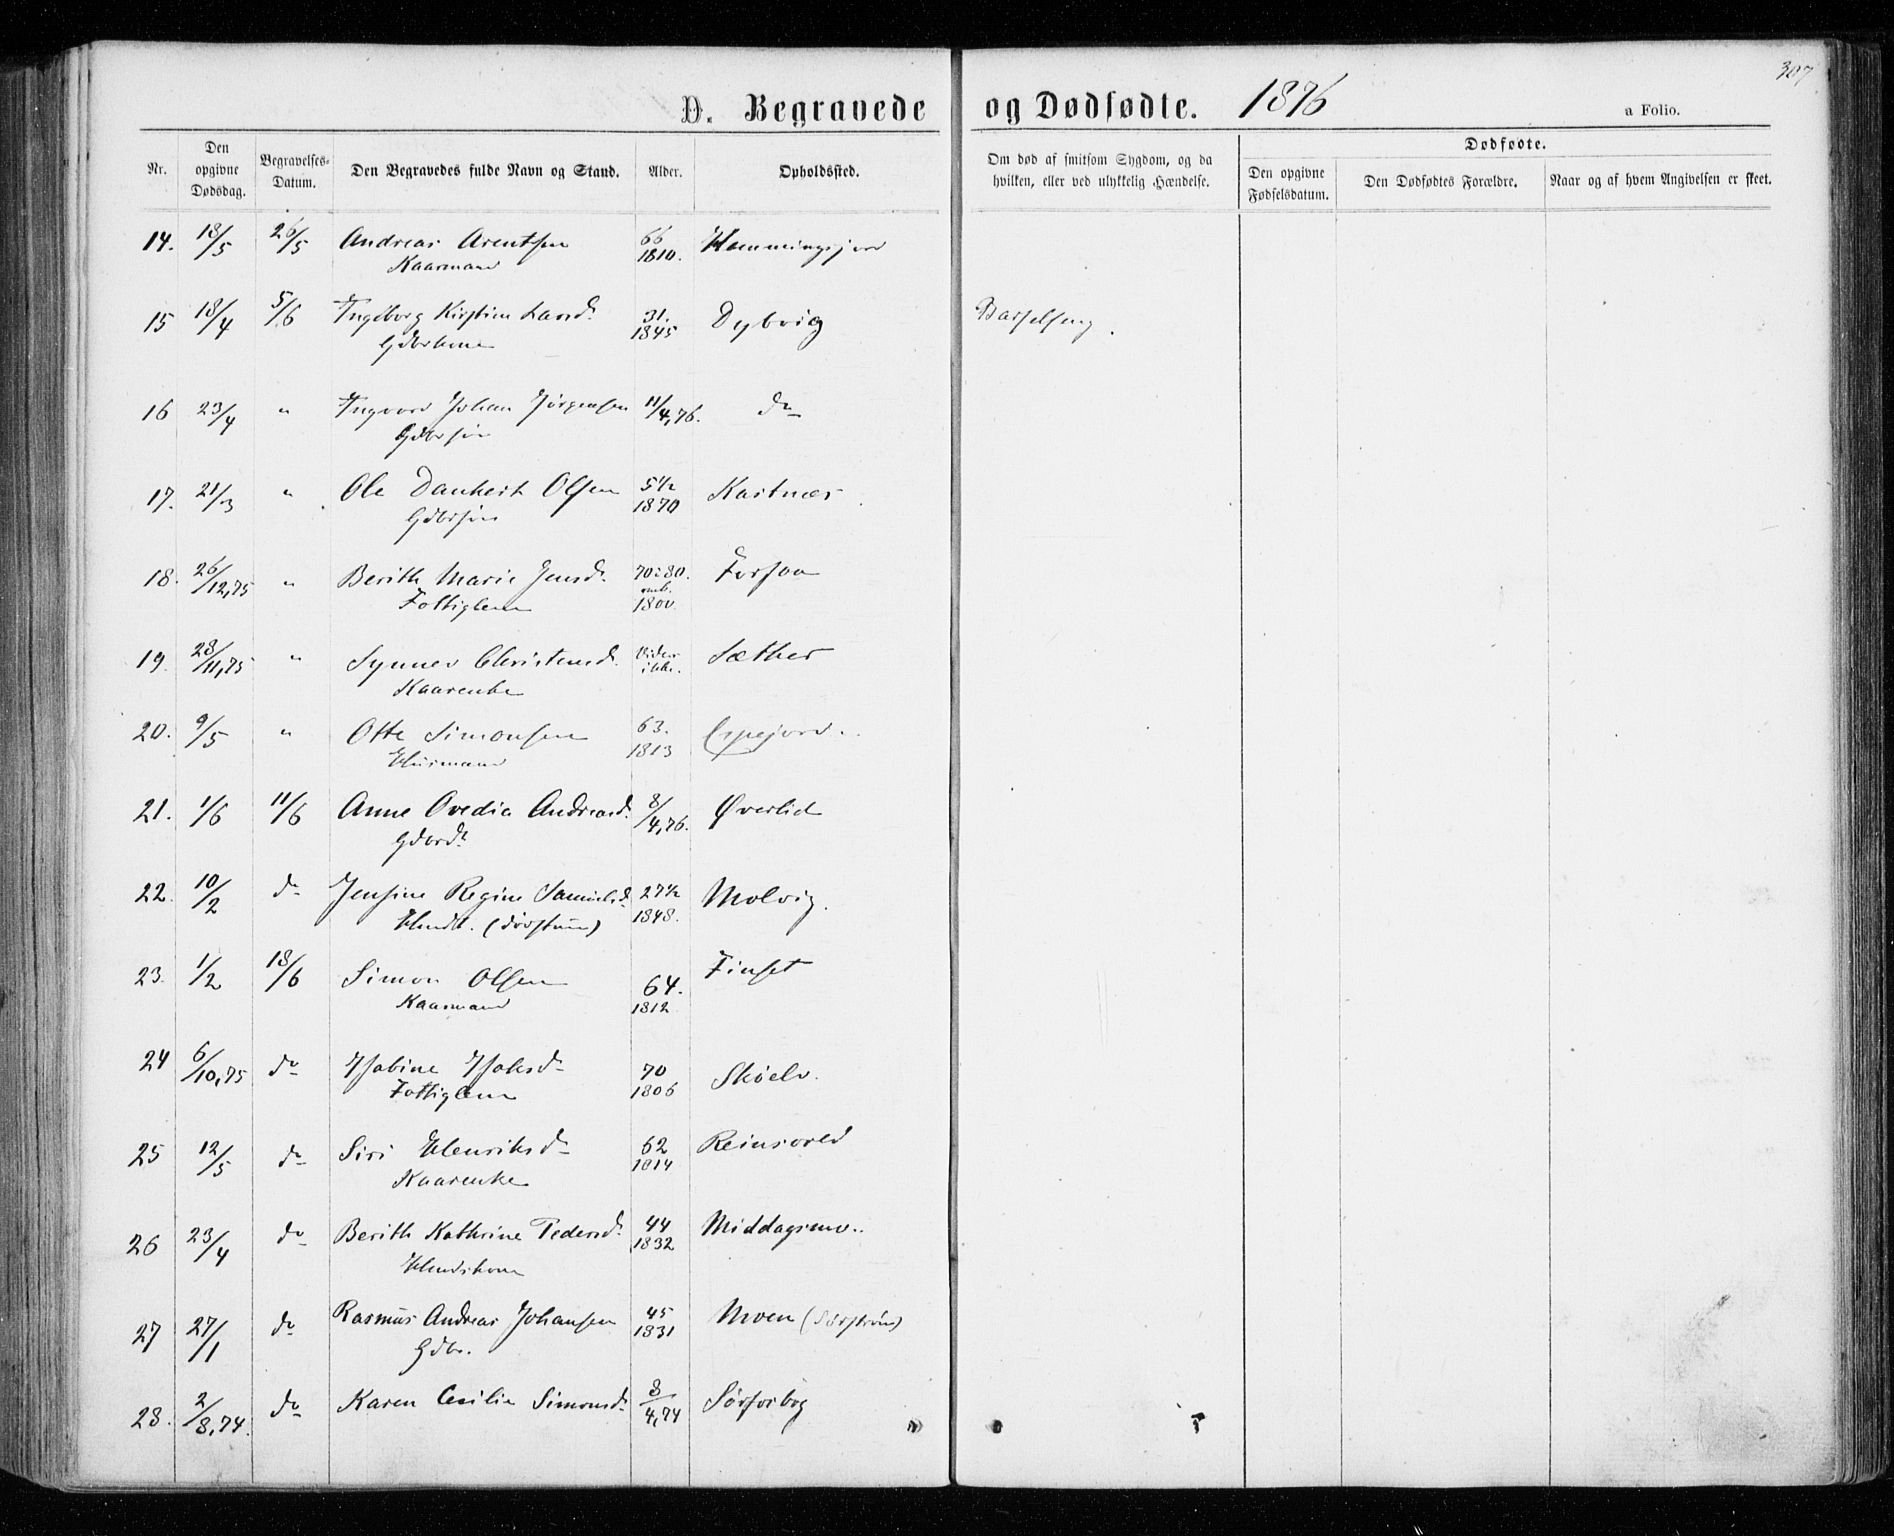 307
D. Begravede og Dødfødte. 1876 a Folio.
Nr. Den opgivne Dødsdag. Begravelses-Datum. Den Begravedes fulde Navn og Stand. Alder. Opholdssted. Om død af smitsom Sygdom, og da hvilken, eller ved ulykkelig Hændelse. Dødfødte. Den opgivne Fødselsdatum. Den Dødfødtes Forældre. Naar og af hvem Angivelsen er skeet.
14. 18/5 26/5 Andreas Arentsen 66 Hemmingsjord
Kaarmand 1810.
15 18/4 5/6 Ingeborg Kirstine Larsd. 31. Dybvig Barselseng.
Gdbrkone 1845
16 23/4 " Ingvard Johan Jørgensen 11/4,76. do
Gdbrsøn
17. 21/3 " Ole Dankert Olsen 5 1/2 Kastnæs
Gdbrsøn 1870
18. 26/12,75 " Berith Marie Jensd. 70 à 80. Forsaa
Fattiglem omtr. 1800.
19. 28/11,75 " Synnev Christensd. Vides ikke. Sæther
Kaarenke
20. 9/5 " Otte Simonsen 63. Espejord.
Husmand 1813
21. 1/6 11/6 Anne Ovedia Andreasd. 8/4,76. Øverlid
Gdbrdr
22. 10/2 do Jensine Regine Samuelsd. 27 1/2 Molvig.
1848.
23. 1/2 18/6 Simon Olsen 64. Finset
Kaarmand 1812
24 6/10,75 do Isabine Isaksd. 70 Skøelv.
Fattiglem 1806
25 12/5 do Siri Henriksd. 62 Reinsvold
Kaarenke 1814
26 23/4 do Berith Kathrine Pedersd. 44 Middagsnæs.
Husmdskone 1832
27 27/1 do Rasmus Andreas Johansen 45 Moen (Sørstrøm)
Gdbr. 1831
28. 2/8,74. do Karen Cecilie Simonsd. 8/4,74 Sørforbog